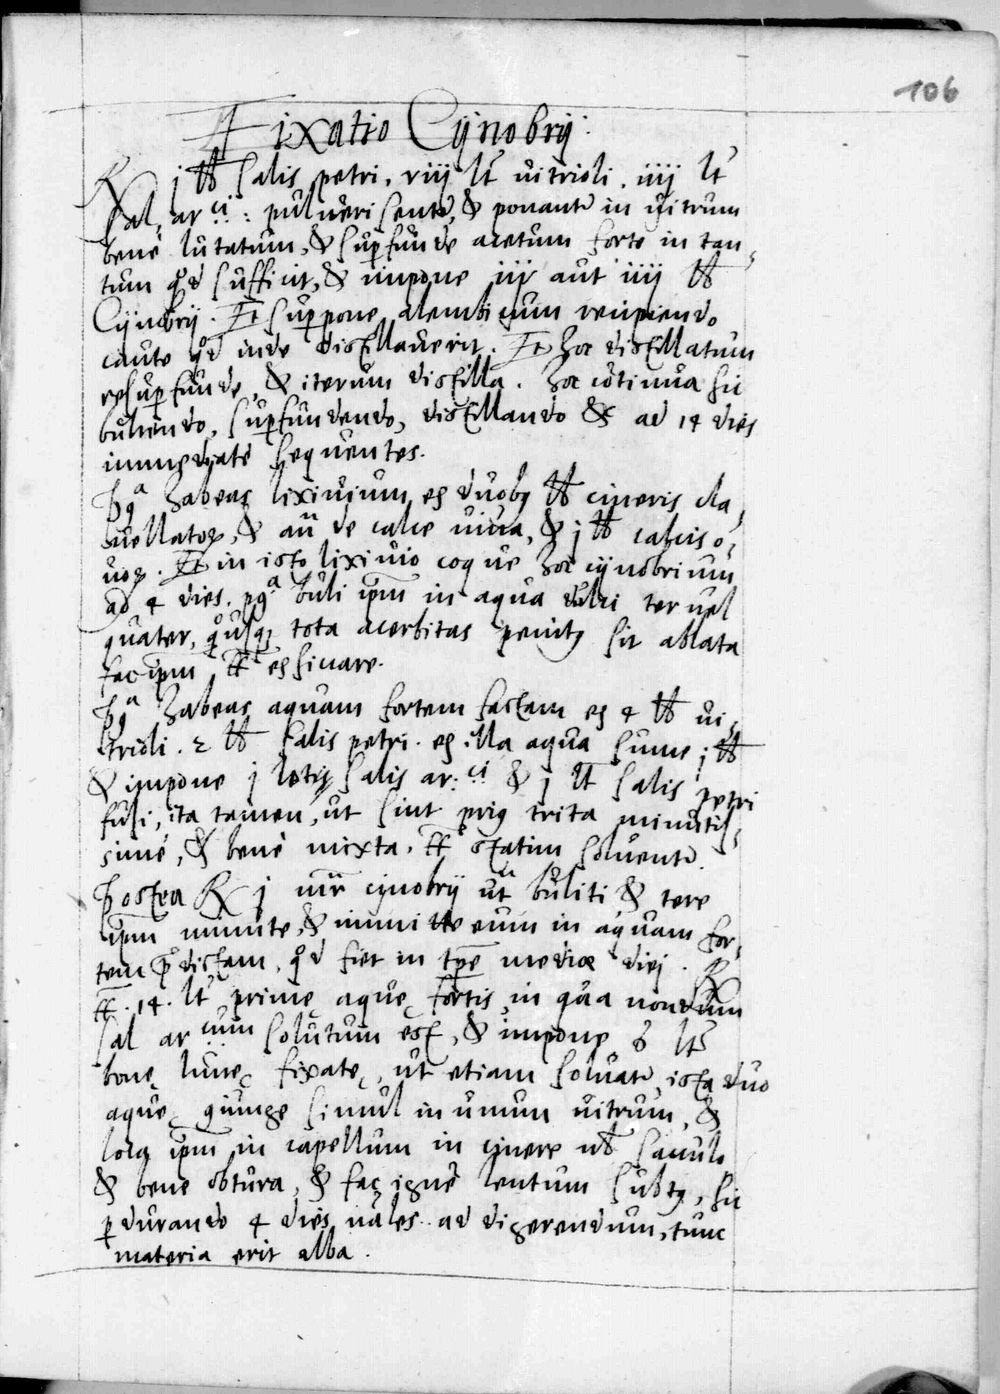 106
Fixatio Cynobrij:
R j ℔ salis petri, viij lt vitrioli, iiij lt
sal, ar ci: pulverisente, & ponante in vitrum
bene lutatum, & supfunde acetum forte in tan
tum qd sufficit, & impone iij aut iiij ℔
Cynobrij. Et suppone alembicum recipiendo
caute qd inde distillaverit. Et hoc distillatum
resupfunde, & iterum distilla. hoc cotinua sic
buliendo, supfundendo, distillando &c ad 14 dies
immediate sequentes.
habeas lixivium ex duobq ℔ cineris cla
vellatoȝ, & an de calce viva, & j ℔ calcis o,
voȝ. Et in isto lixivio coque hoc cijnobrium
ad 4 dies. pqa buli ipm in aqua dulci ter vel
quater, tota acerbitas penitq sit ablata
fac ipm exsicare.
habeas aquam fortem factam ex 4 ℔ vi
trioli. 2 ℔ salis petri. ex illa aqua sume j ℔
& impone j lotis salis ar: ci & j lt salis petri
fusi, ita tamen, ut sint priq trita minutis,
sime, & bene mixta. statim solvente.
Postea R j mr cijnobrij ut buliti & tere
ipm minute, & immitte eum in aquam for,
tem pdictam, qd fiet in tpe mediæ diei. R
14. lt primę aquę fortis in qua nondum
sal ar cum solutum est, & impone 6 lt
bonę lunę fixatę, ut etiam solvate, ista duo
aquę giunge simul in unum vitrum, &
locq ipm in capellum in cinere sabulo
& bene obtura, & fac igne lentum subtq, sic
pdurando 4 dies nales ad digerendum, tunc
materia erit alba.